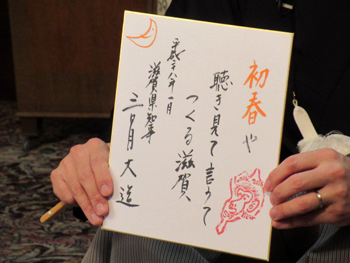 初春や
聴き見て言うて
つくる滋賀
平成二十八年一月
滋賀県知事
三日月大造